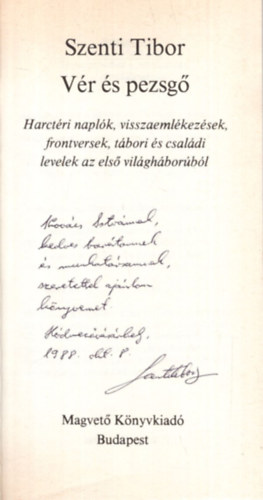 Szenti Tibor
Vér és pezsgő
Harctéri naplók, visszaemlékezések,
frontversek, tábori és családi
levelek az első világháborúból
Kovács Istvánnak,
kedves barátomnak
és munkatársamnak,
szeretettel ajánlom
könyvemet
Hódmezővásárhely,
1988. okt. 8.
Szenti Tibor
Magvető Könyvkiadó
Budapest